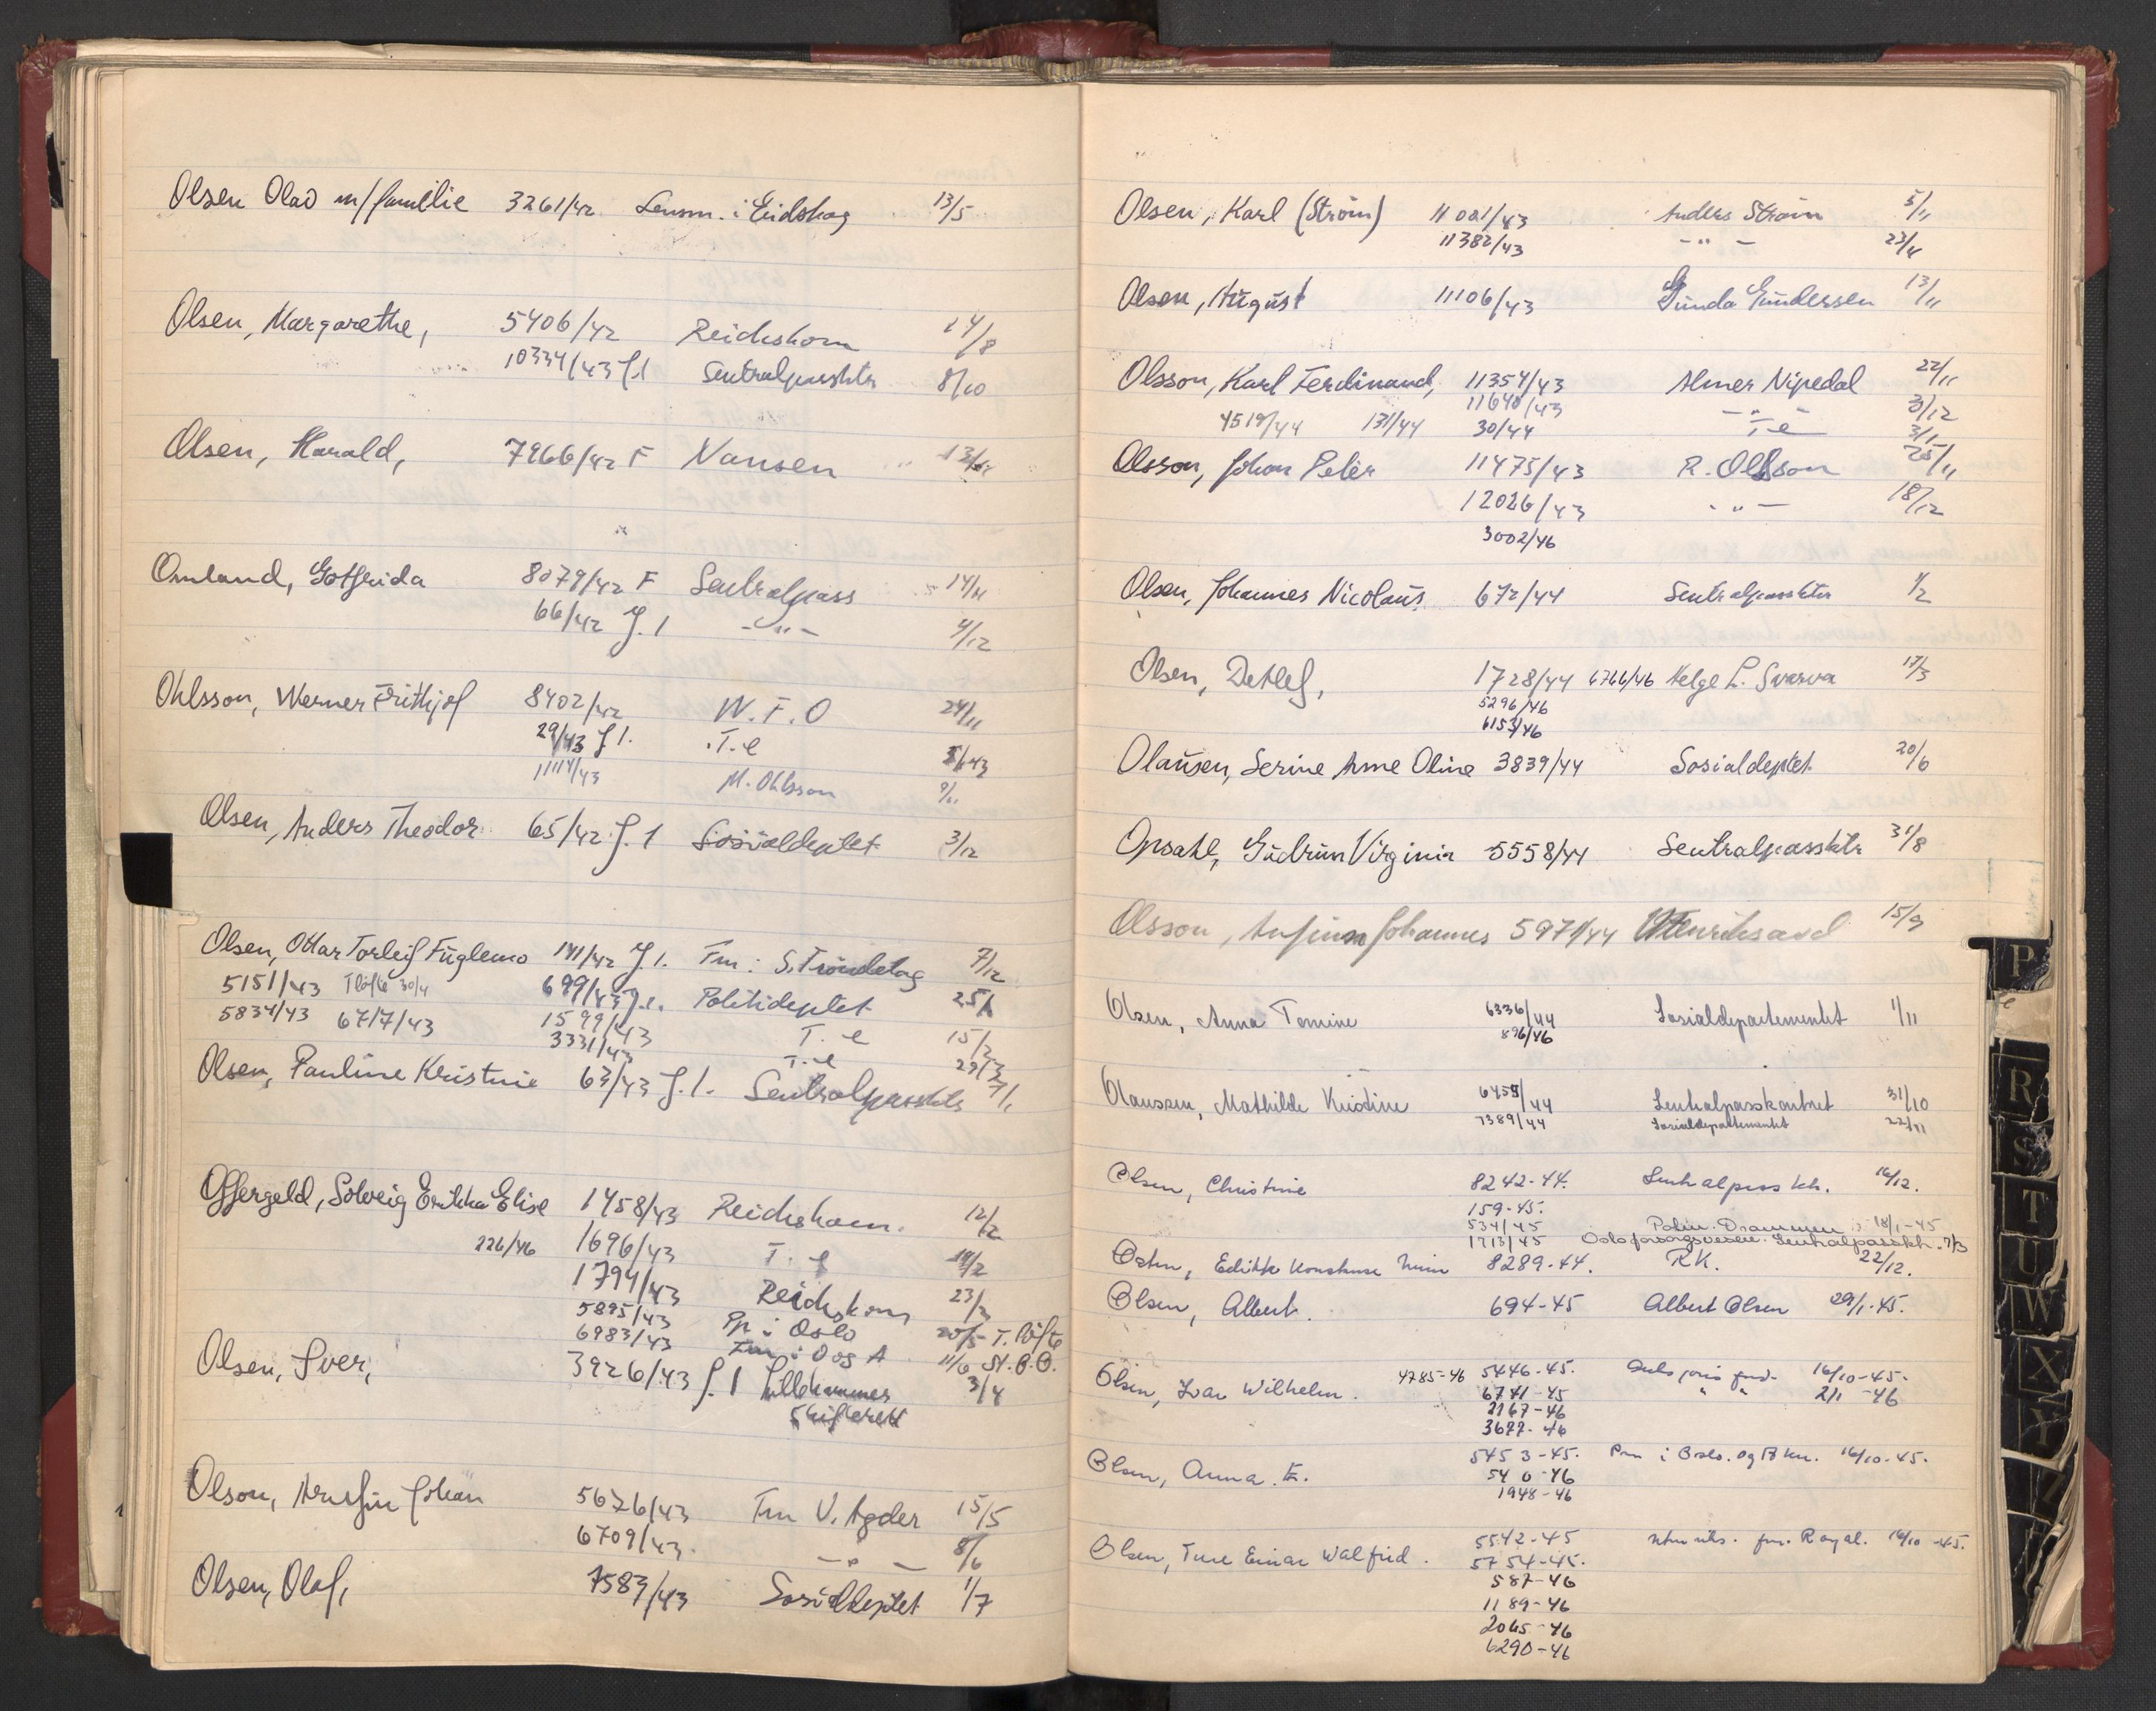 Olsen Olav m/familie 3261/42 Lensm. i Eidskog 13/5
Olsen, Margarethe, 5406/42 Reichskom 24/8
10334/43 J.1 Sentralpassktr 8/10
Olsen, Harald, 7966/42 F Nansen
Omland, Gotfrida 8079/42 F Sentralpass 14/11
66/42 J.1 -"- 4/12
Ohlsson, Werner Frithjof 8402/42 W.F.O 24/11
29/43 J1. T.e 5/1 43
11114/43 M. Ohlsson 9/11
Olsen, Anders Theodor 65/42 J.1 Sosialdeptet 3/12
Olsen, Ottar Torleif Fuglemo 141/42 J.1. Fm i S. Trøndelag 7/12
5151/43 T. Øfte 30/4 699/43 J.1. Politideptet 25/1
5834/43 67/7/43 1599/43 T. e 15/2
3331/43 T.e 23/3
Olsen, Pauline Kristine 63/43 J.1. Sentralpassktr 7/1
Offergeld, Solveig Erikka Elise 1458/43 Reichskom. 12/2
226/46 1696/43 T. e 19/2
1794/43 Reichskom 23/2
5895/43 Pp. i Oslo 20/5 T. Øfte
6983/43 Fm i O og A 11/6 St.B.O.
Olsen, Iver, 3926/43 J.1 Lillehammer 3/4
skifterett
Olson, Arnfin Johan 5626/43 Fm V. Agder 15/5
6709/43. -"- 8/6
Olsen, Olaf, 7583/43 Sosialdeptet 1/7
Olsen, Karl (Strøm) 11001/43 Anders Strøm 5/11
11382/43 -"- 23/11
Olsen, August 11106/43 Gunda Gundersen 13/11
Olsson, Karl Ferdinand, 11354/43 Almer Nipedal 22/11
11640/43 -"- 3/12
4519/44 131/44 30/44 T.e 3/1
Olsson, Johan Peter 11475/43 R. Olsson 25/11
12026/43 -"- 18/12
3002/46
Olsen, Johannes Nicolaus 672/44 Sentralpassktr 1/2
Olsen, Detlef, 1728/44 6766/46 Helge L. Svarva 17/3
5296/46
6153/46
Olausen, Serine Anne Oline 3839/44 Sosialdeptet 20/6
Opsahl, Gudrun Virginia 5558/44 Sentralpassktr 31/8
Olsson, Anfinn Johannes 5971/44 Utenriksavd 15/9
Olsen, Anna Tomine 6336/44 Sosialdepartementet 1/11
896/46
Olaussen, Mathilde Kristine 6459/44 Sentralpasskontret 31/10
7389/44 Sosialdepartementet 22/11
Olsen, Christine 8242-44. Sentralpasskt. 16/12.
159-45.
534/45 Polim. Drammen 18/1-45
1713/45 Oslo forsorgsvesen. Sentralpasskt. 7/3
Osten, Edith Konstanse 8289-44. RK. 22/12.
Olsen, Albert. 694-45 Albert Olsen 29/1-45.
Olsen, Ivar Wilhelm. 4785-46 5446-45. 16/10-45.
6741-45 " " 2/1-46
2167-46
3677-46
Olsen, Anna. E. 5453-45. Pm i Oslo. og 16/10-45.
540-46
1948-46
Olsen, Ture Einar Walfrid. 5542-45 Utenriks. Royal. 16/10-45.
5754-45.
587-46
1189-46
2065-46
6290-46
P
R
S
T
U
W
X
Y